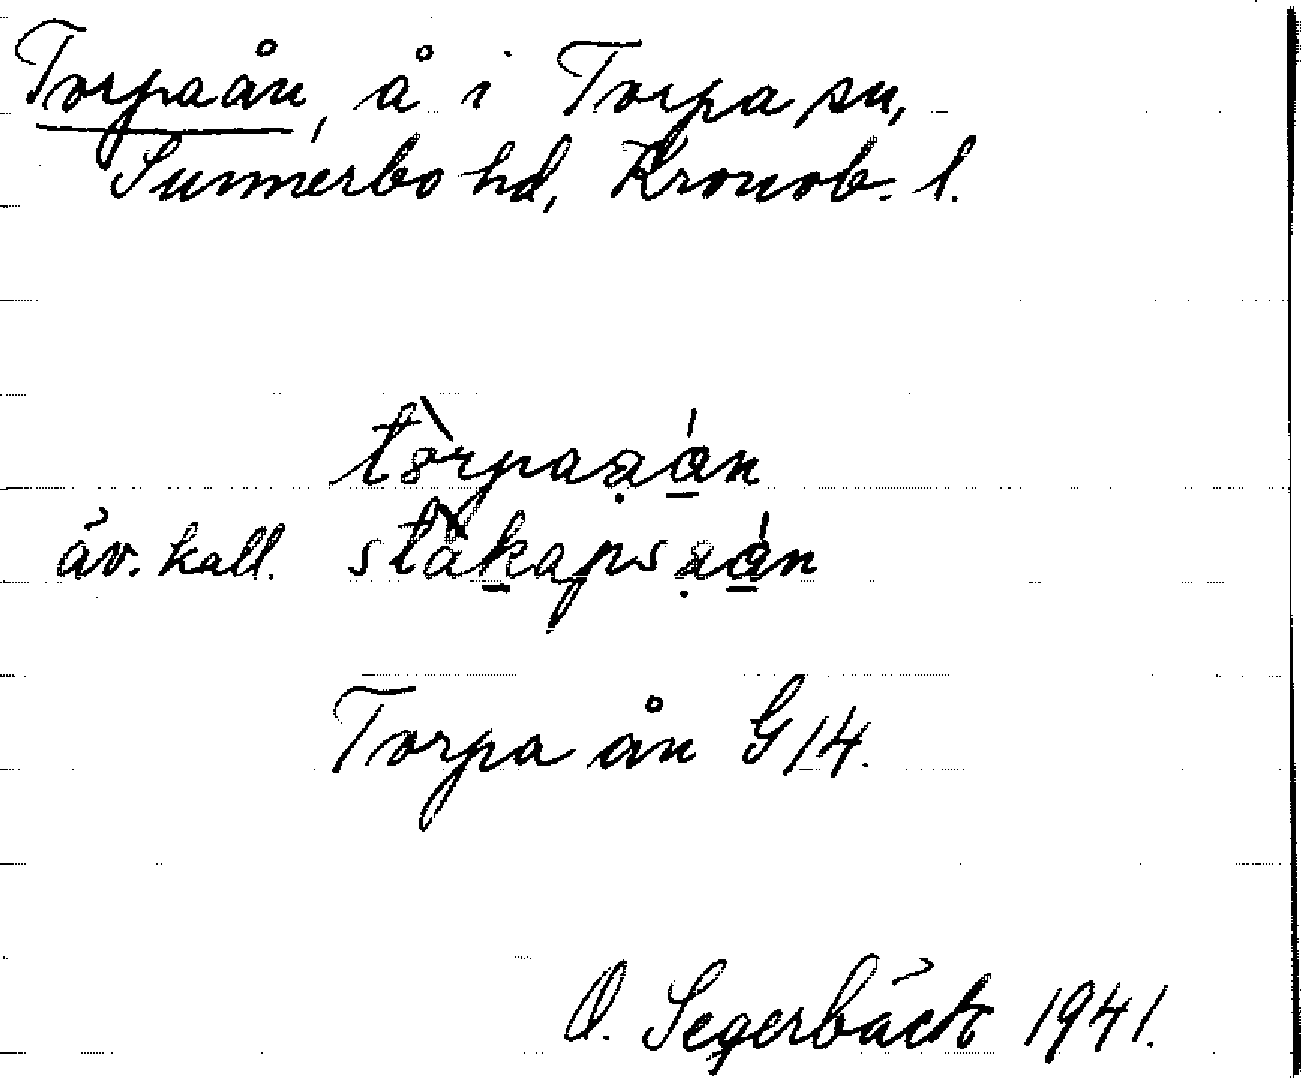 Torpaån, å i Torpa sn,
Sunnerbo hd, Kronob. l.
tòrpaạán
äv. kall. stàkapsạán
Torpa ån G14.
O. Segerbäck 1941.